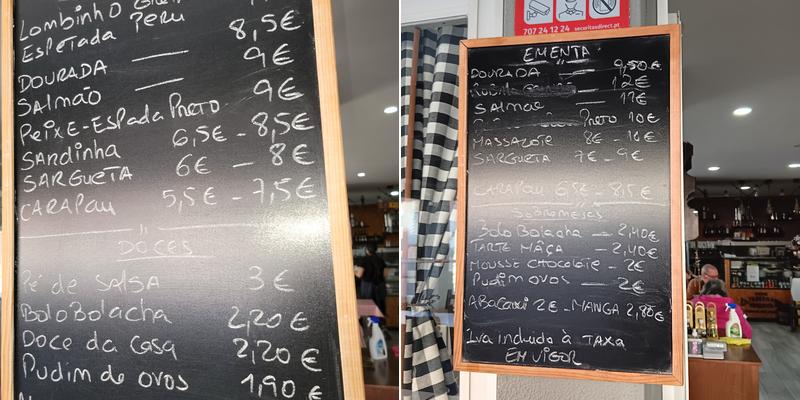 Lombinho
ESPETADA PERU 8,5€
DOURADA — 9€
SALMÃO — 9€
PEIXE-ESPADA PRETO 8,5€
SARDINHA 6,5€ - 8,5€
SARGUETA 6€ — 8€
CARAPAU 5,5€ - 7,5€
DOCES
Pé de SALSA 3€
BOLO BOLACHA 2,20€
DOCE DA CASA 2,20€
PUDIM DE OVOS 1,90€
707 24 12 24 securitasdirect.pt
EMENTA
DOURADA — 9,50€
12€
SALMÃO — 11€
PRETO 10€
MASSAZOTE 8€ - 10€
SARGUETA 7€ - 9€
CARAPAU 6,5€ - 8,5€
SOBREMESAS
BOLO BOLACHA — 2,40€
TARTE MÂÇA — 2,40€
MOUSSE CHOCOLATE — 2€
PUDIM OVOS — 2€
ABACAXI 2€ - MANGA 2,80€
Iva incluido à TAXA
EM VIGOR